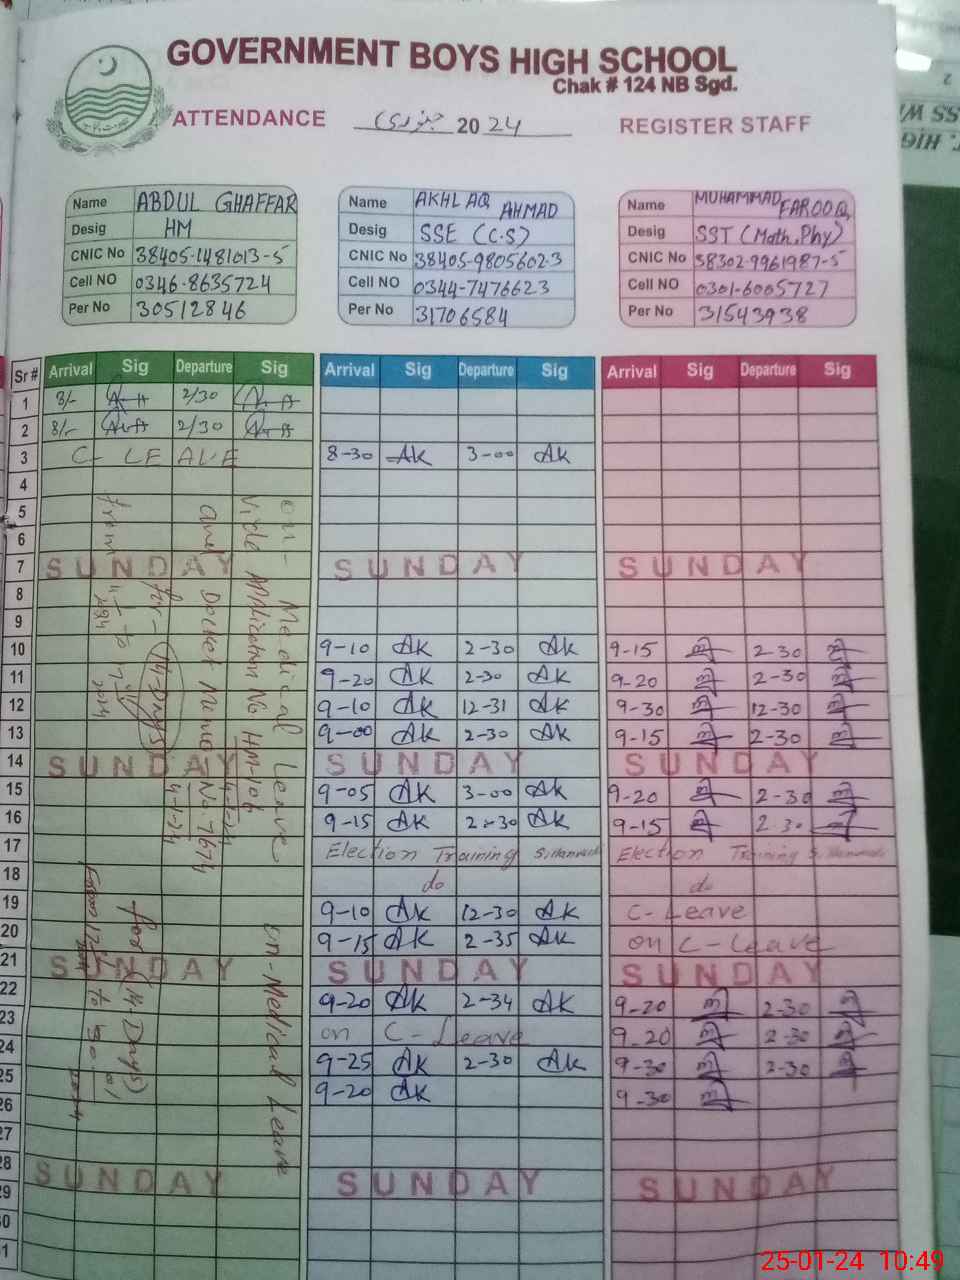 GOVERNMENT BOYS HIGH SCHOOL
Chak # 124 NB Sgd.
ATTENDANCE جنوری 2024 REGISTER STAFF
Name ABDUL GHAFFAR
Desig HM
CNIC No 38405-1481013-5
Cell NO 0346-8635724
Per No 30512846
Name AKHLAQ AHMAD
Desig SSE (C.S)
CNIC No 38405-9805602-3
Cell NO 0344-7476623
Per No 31706584
Name MUHAMMAD FAROOQ
Desig SST (Math, Phy)
CNIC No 38302-9961987-5
Cell NO 0301-6005727
Per No 31543938
Sr # Arrival Sig Departure Sig Arrival Sig Departure Sig Arrival Sig Departure Sig
1 8/- 2/30
2 8/- 2/30
3 C- LEAVE 8-30 AK 3-00 AK
4
5
6
7 SUNDAY SUNDAY SUNDAY
8
9
10 9-10 AK 2-30 AK 9-15 2-30
11 9-20 AK 2-30 AK 9-20 2-30
12 9-10 AK 12-31 AK 9-30 12-30
13 9-00 AK 2-30 AK 9-15 2-30
14 SUNDAY SUNDAY SUNDAY
15 9-05 AK 3-00 AK 9-20 2-30
16 9-15 AK 2-30 AK 9-15 2-30
17 Election Training Election Training
18 do do
19 9-10 AK 12-30 AK C-Leave
20 9-15 AK 2-35 AK on C-Leave
21 SUNDAY SUNDAY SUNDAY
22 9-20 AK 2-34 AK 9-20 2-30
23 on C-Leave 9-20 2-30
24 9-25 AK 2-30 AK 9-30 2-30
25 9-20 AK 9-30
26
27
28 SUNDAY SUNDAY SUNDAY
29
30
31
on- Medical Leave
Vide Application No HM-106 4-1-24
and Docket Memo No. 7674 4-1-24
for- 14-Days
from
on-Medical Leave
for (14-Days)
25-01-24 10:49